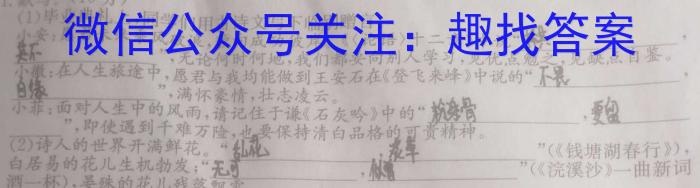 (1)毕
微信公众号关注：趣找答案
小安：
十二
其不
，无论何时何地，我们都要向别人学习，见优点勉之，见缺点自鉴。
小徽：在人生旅途中，愿君与我均能做到王安石在《登飞来峰》中说的“不畏
，
自缘”，满怀豪情，壮志凌云。
小菲：面对人生中的风雨，请记住于谦《石灰吟》中的“粉身骨，要留
”，即使遇到千难万险，也要保持清白品格的可贵精神。
(2)诗人的世界开满鲜花。“乱花 浅草”(《钱塘湖春行》)，
白居易的花儿生机勃发；“无可，似曾”(《浣溪沙》一曲新词
酒一杯)，晏殊的花儿残落飘零